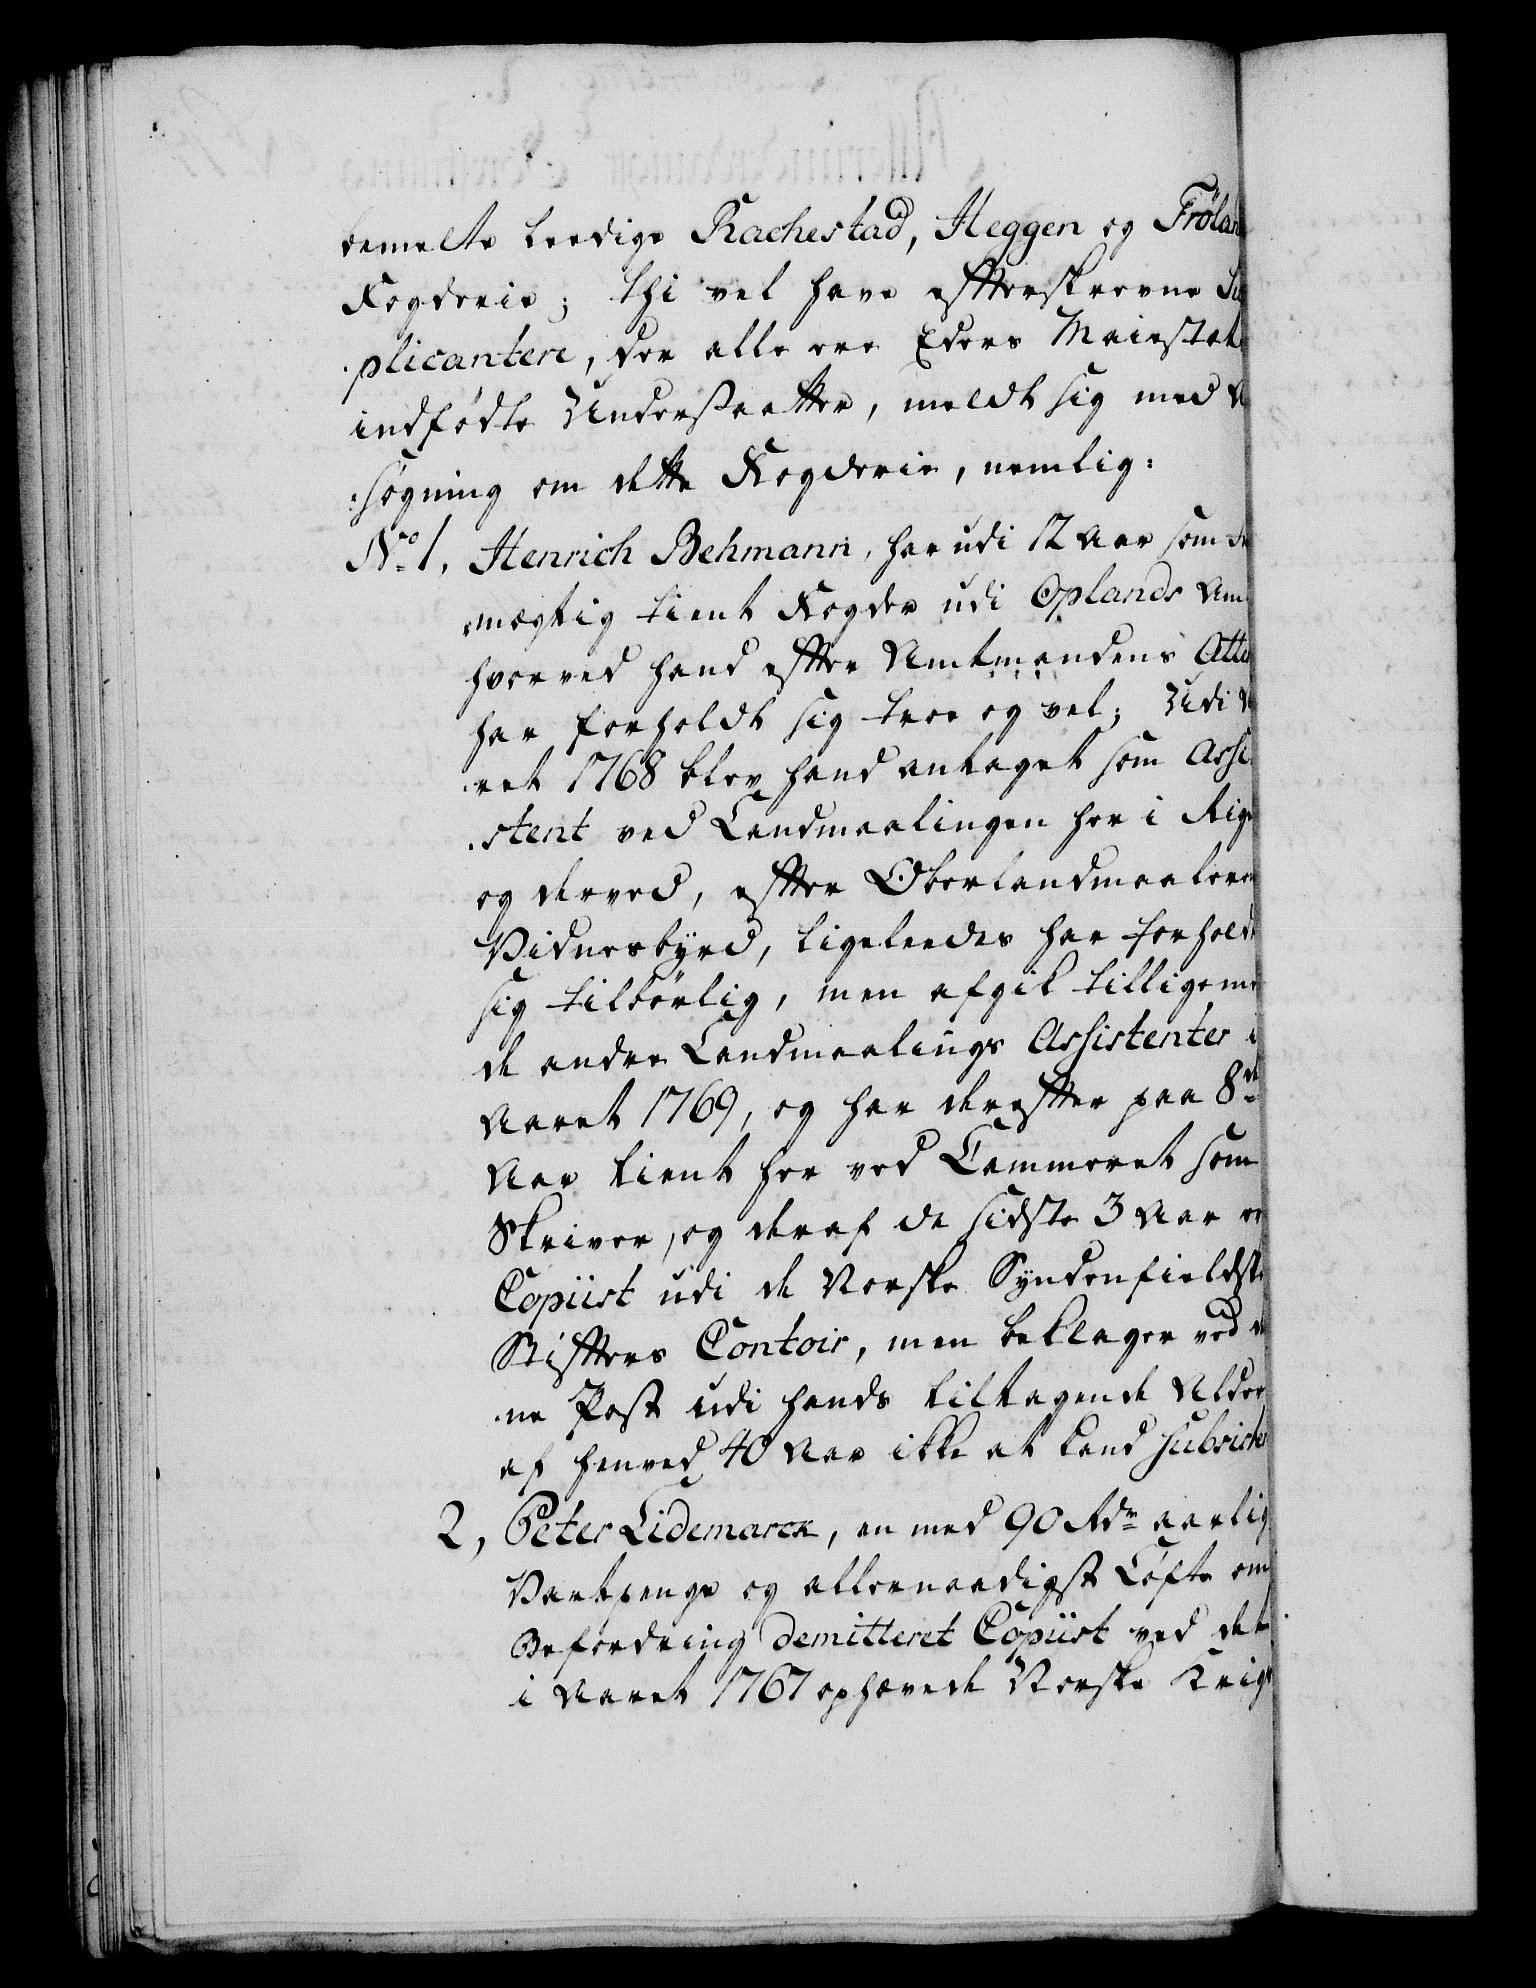 bemelte leedige Rachestad, Heggen og Frölan
Fogderie; thi vel have efterskrevne Su
plicantere, der alle ere Eders Maiestæts
indfødte Undersaatter, meldt sig med A
søgning om dette Fogderie, nemlig:
No 1, Henrich Behmann, har udi 12 Aar som Fu
mægtig tient Fogder udi Oplands Am
hvorved hand efter Amtmandens Atte
har forholdt sig troe og vel; Udi A
ret 1768 blev hand antaget som Assi
stent ved Landmaalingen her i Rige
og derved, efter Oberlandmaaleren
Vidnesbyrd, ligeledes har forholdt
sig tilbørlig, men afgik tilligeme
de andre Landmaalings Assistenter i
Aaret 1769, og har derefter paa 8de
Aar tient her ved Cammeret som
Skriver, og deraf de sidste 3 Aar er
Copiist udi de Norske Syndenfieldske
Stifters Contoir, men beklager ved de
ne Post udi hands tiltagende Alder
af henved 40 Aar ikke at kand subsister
2, Peter Lidemarck, en med 90 Rdr aarlig
Vartpenge og allernaadigst Løfte om
Befordring demitteret Copiist ved det
i Aaret 1767 ophævede Norske Krigs